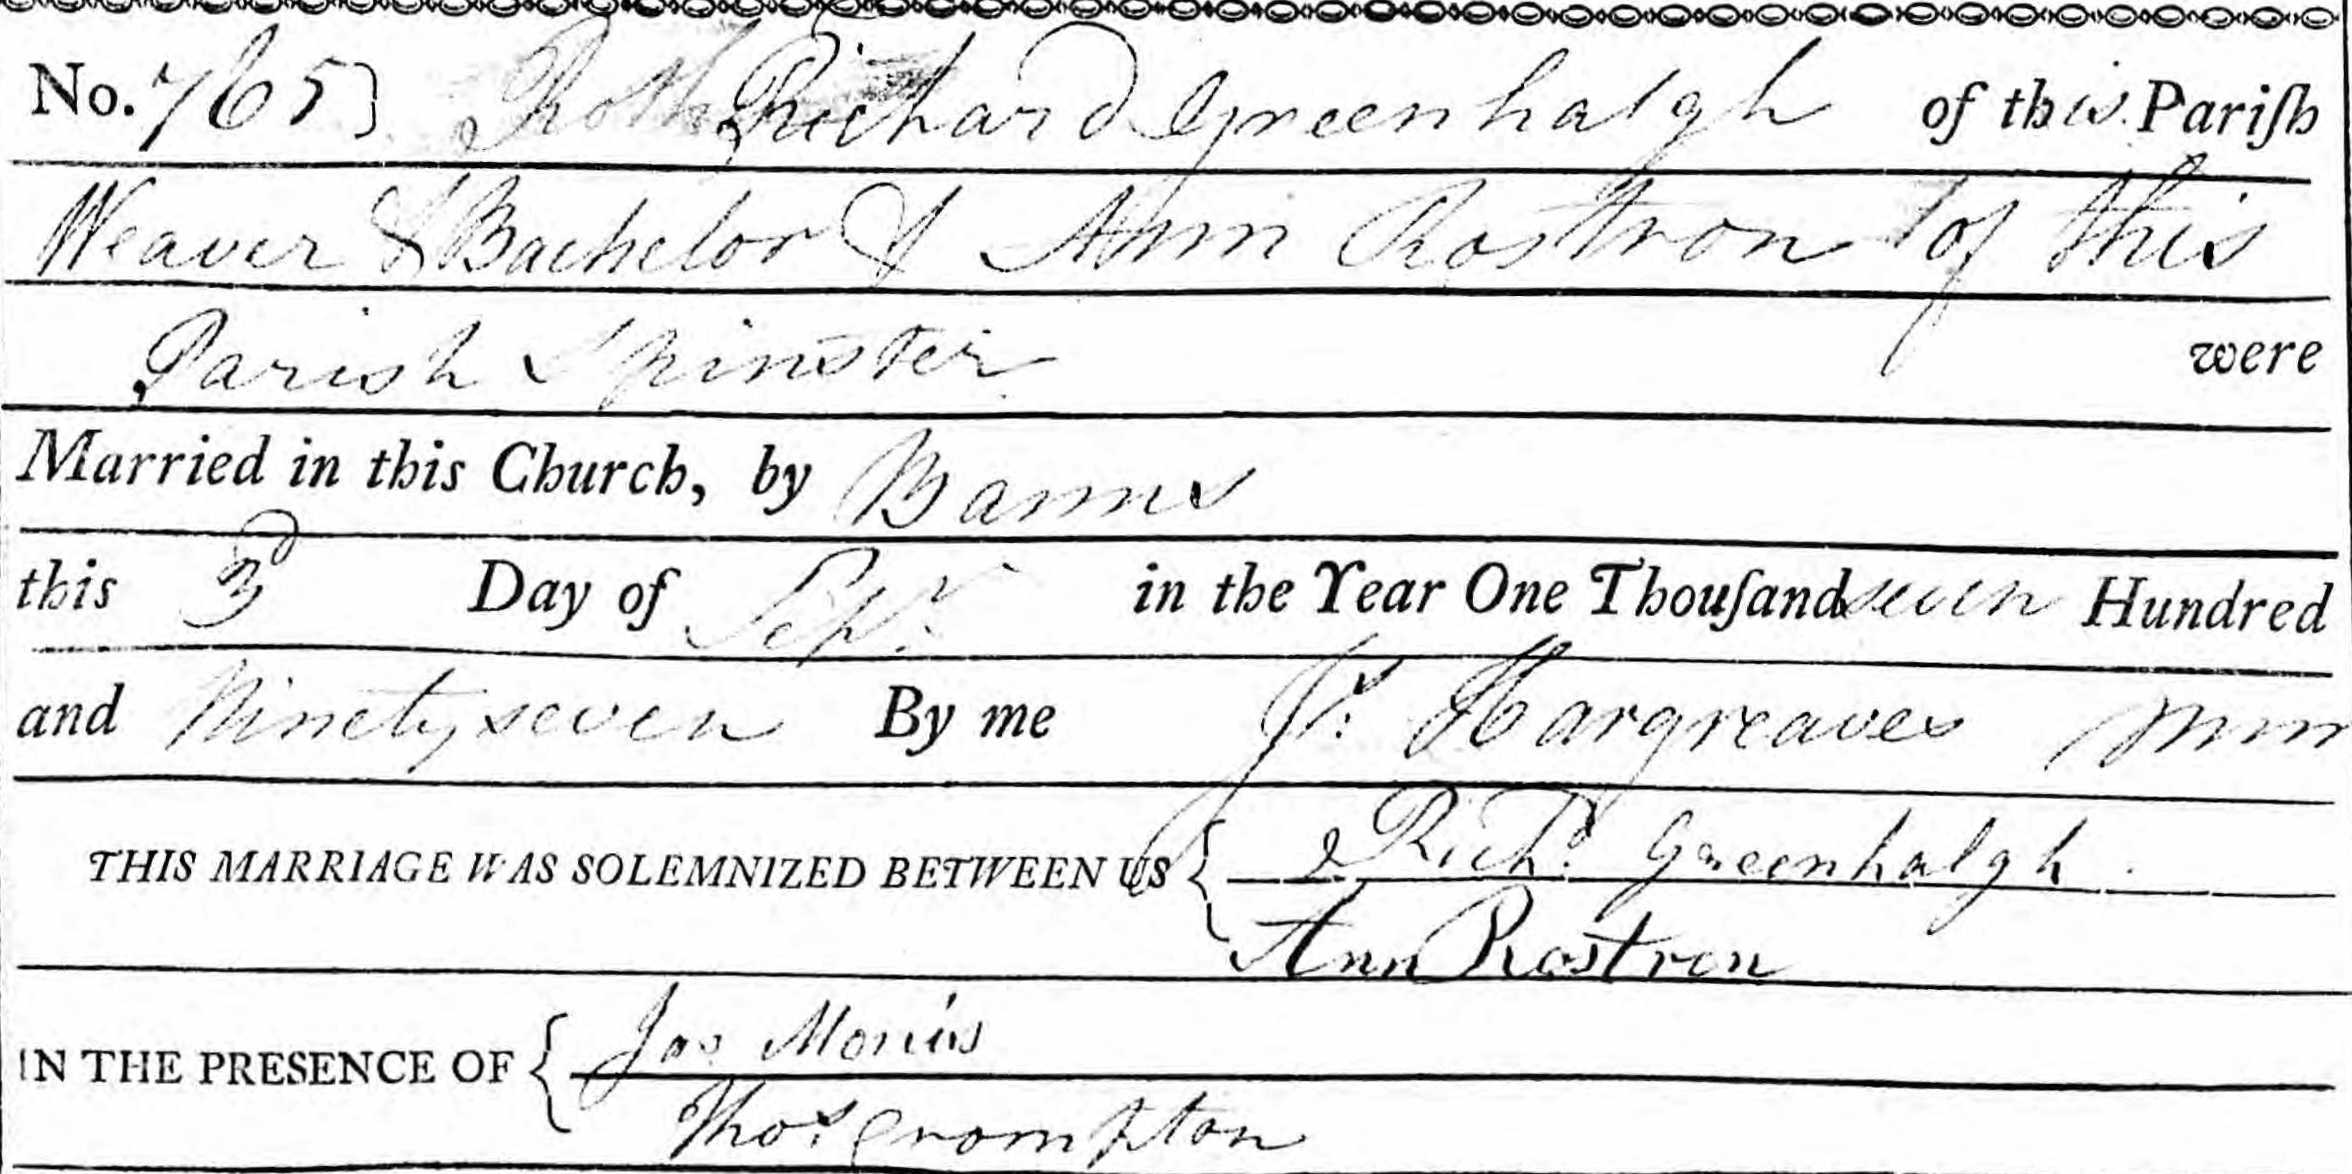 No. 765} Richard Greenhalgh of this Pariſh
Weaver & Bachelor & Ann Rostron of this
Parish Spinster were
Married in this Church, by Banns
this 3d Day of Sepr. in the Year One Thouſand seven Hundred
and Ninety seven By me Js. Hargreaves Minr
THIS MARRIAGE WAS SOLEMNIZED BETWEEN US { Richd. Greenhalgh
Ann Rostron
IN THE PRESENCE OF { Jas Morris
Thos. Crompton